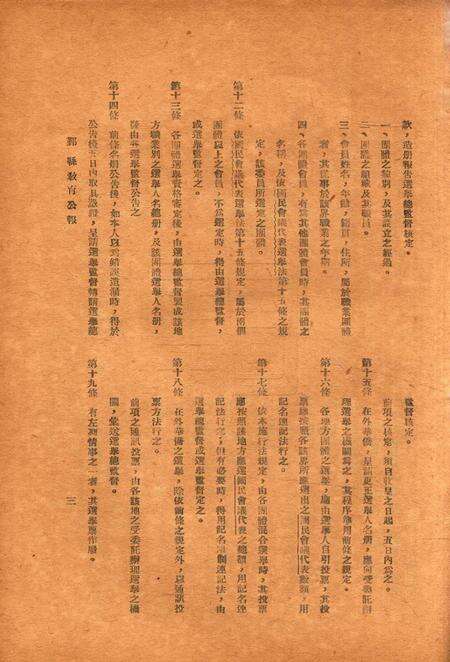 款,造册報告選舉總監督核定。
一、團體之規則,及其設立之經過。
二、團體之組織及其職員。
三、會員姓名、年齡、籍貫、住所,屬於職業團體
者,其從事於該界職業之年期。
四、各團體會員,有為其他團體會員時,其團體之
名稱,及依國民會議代表選舉法第十五條之規
定,該會員所選定之團體。
第十二條 依國民會議代表選舉法第十五條規定,屬於兩個
團體以上之會員,不為選定時,得由選舉總監督,
或選舉監督定之。
第十三條 各團體選舉資格審定後,由選舉總監督製成該地
方職業別之選舉人名冊,及該團體選舉人名冊,
由各選舉監督公告之。
第十四條 前條名冊公告後,如本人以為錯誤遺漏時,得於
公告後五日內取具證據,呈請選舉監督轉請選舉總
鄞縣教育公報
監督核定。
前項之核定,須自收呈之日起,五日內為之。
第十五條 在外華僑,呈請更正選舉人名冊,應向受委託辦
理選舉之機關為之,其程序準用前條之規定。
第十六條 各地方團體之選舉,應由選舉人自行投票,其投
票應按照各該界所應選出之國民會議代表數額,用
記名連記法行之。
第十七條 依本施行法規定,由各團體混合選舉時,其投票
應按照該地方應選國民會議代表之總額,用記名連
記法行之,但有必要時,得用記名限制連記法,由
選舉總監督或選舉監督定之。
第十八條 在外華僑之選舉,除依前條之規定外,以通訊投
票方法行之。
前項之通訊投票,由各該地之受委託辦理選舉之機
關,彙送選舉總監督。
第十九條 有左列情事之一者,其選舉應作廢。
三